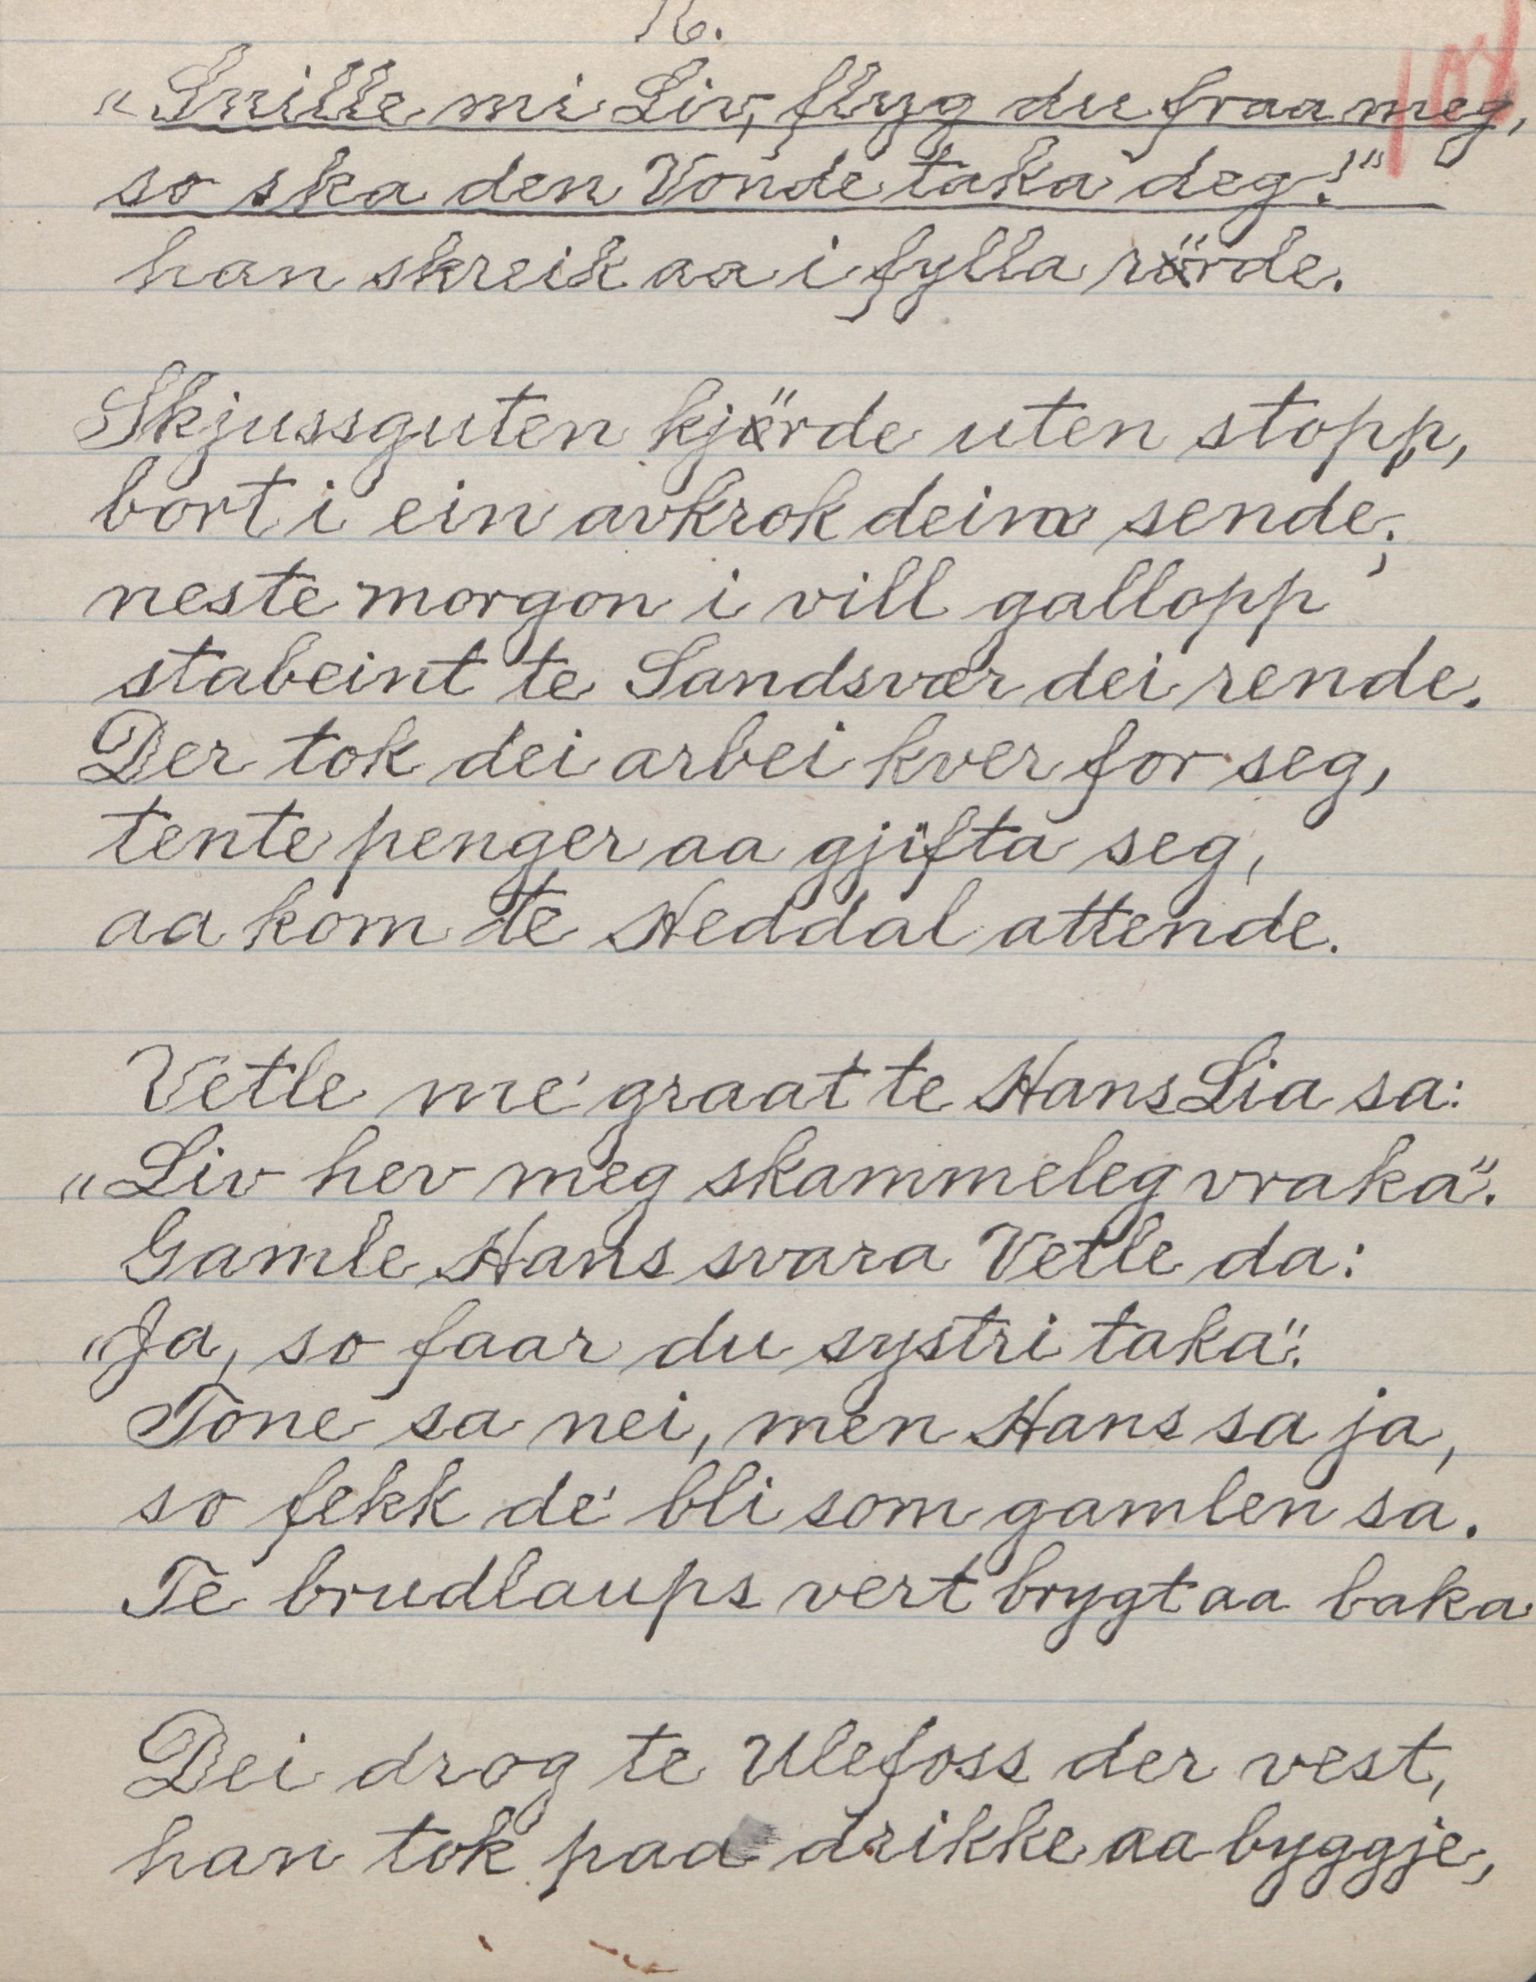 16.
108
"Snille mi Liv, flyg du fraa meg,
so ska den Vonde taka deg!"
han skreik aa i fylla rörde.
Skjussguten kjörde uten stopp,
bort i ein avkrok dei sende;
neste morgon i vill gallopp
stabeint te Sandsvær dei rende.
Der tok dei arbei kver for seg,
tente penger aa gjifta seg,
aa kom te Heddal attende.
Vetle me' graat te Hans Lia sa:
"Liv hev meg skammeleg vraka".
Gamle Hans svara Vetle da:
"Ja, so faar du systri taka".
Tone sa nei, men Hans sa ja,
so fekk de' bli som gamlen sa.
Te brudlaups vert brygt aa baka
Dei drog te Ulefoss der vest,
han tok paa drikke aa byggje,